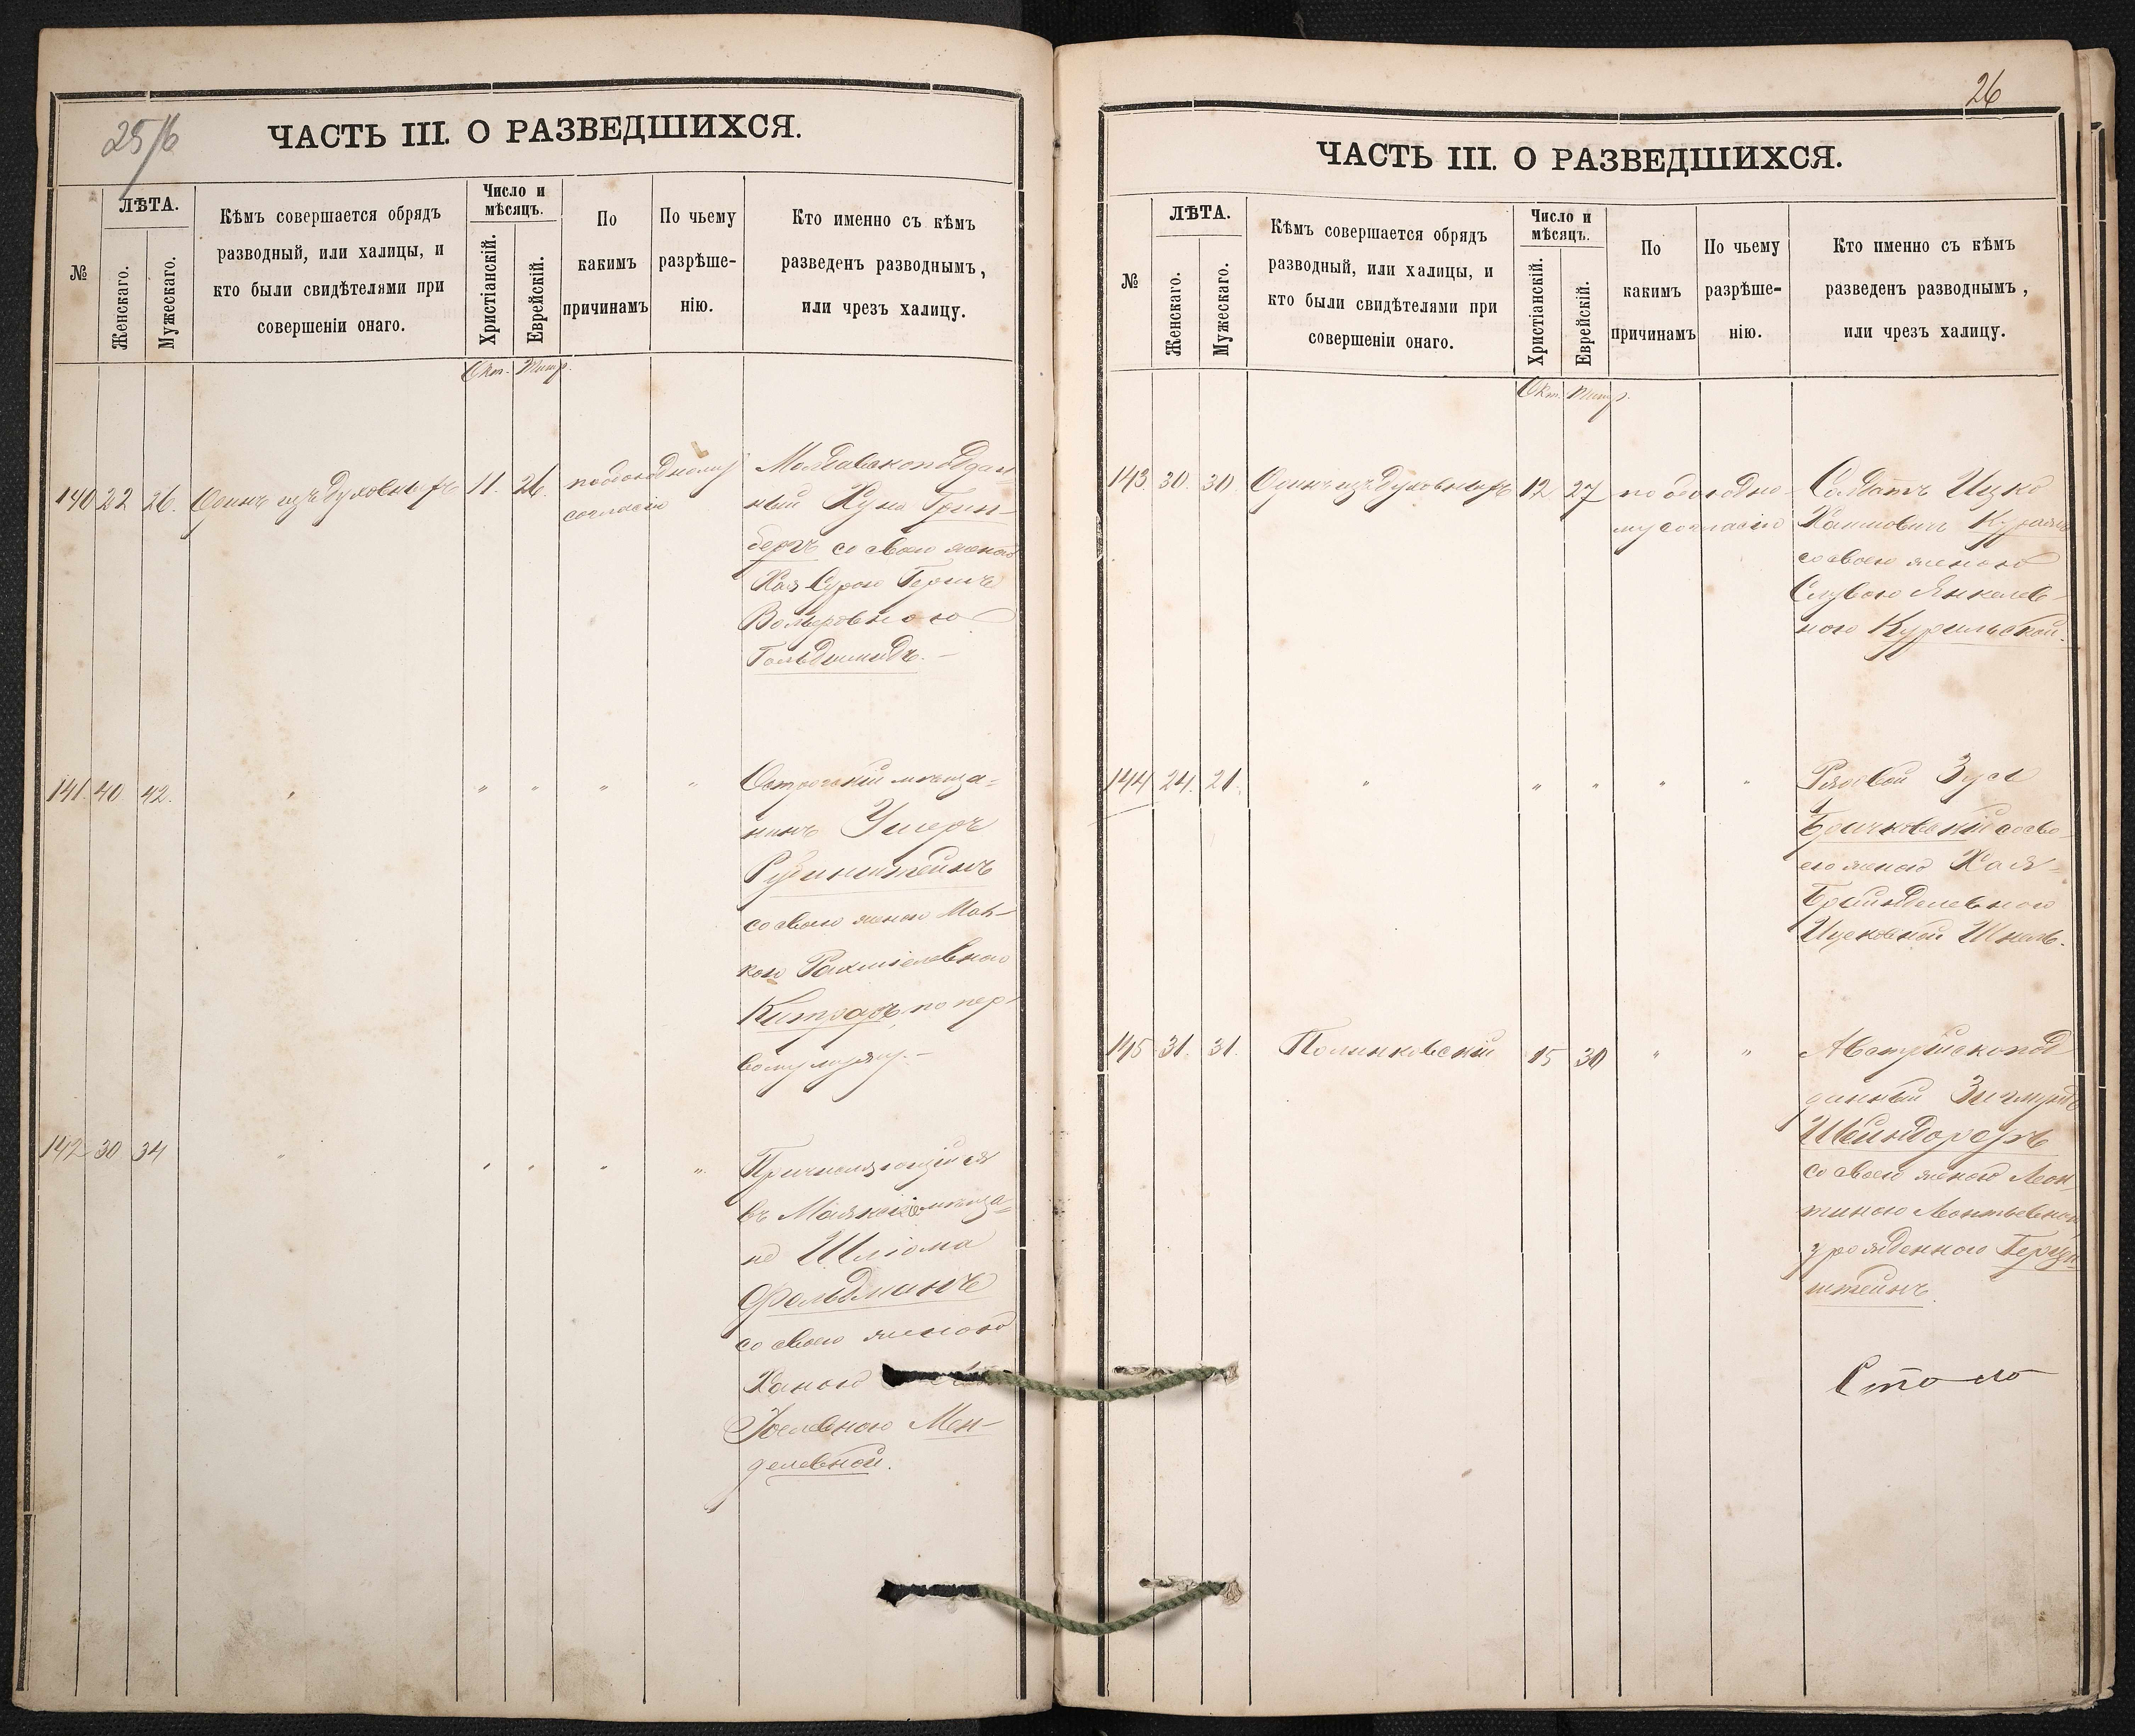 25/б
ЧАСТЬ III. О РАЗВЕДШИХСЯ.
№
ЛѢТА.
Женскаго.
Мужескаго.
Кѣмъ совершается обрядъ
разводный, или халицы, и
кто были свидѣтелями при
совершеніи онаго.
Число и
мѣсяцъ.
Христіанскій.
Еврейскій.
По
какимъ
причинамъ
По чьему
разрѣше-
нію.
Кто именно съ кѣмъ
разведенъ разводнымъ,
или чрезъ халицу.
Окт. Тишр.
140 22 26. Одинъ изъ духовныхъ 11. 26.
согласію
Молдавскоподдан
ный Хуна Грин-
бергъ со своею женою
Хая Сурою Герш
Вольфовною
Гольдшмидъ. -
141. 40 42. " " " " "
Острогскій мѣща-
нинъ Ушеръ
Рубинштейнъ
со своею женою Мат-
кою Рахмielевною
по пер-
вому мужу. -
142 30 34 " " " " "
Причисляющійся
въ Маякскіе мѣща-
не Шлiома
Фельдманъ
со своею женою
Ханою
Іоселевною Мен-
делевной.
26
ЧАСТЬ III. О РАЗВЕДШИХСЯ.
№
ЛѢТА.
Женскаго.
Мужескаго.
Кѣмъ совершается обрядъ
разводный, или халицы, и
кто были свидѣтелями при
совершеніи онаго.
Число и
мѣсяцъ.
Христіанскій.
Еврейскій.
По
какимъ
причинамъ
По чьему
разрѣше-
нію.
Кто именно съ кѣмъ
разведенъ разводнымъ,
или чрезъ халицу.
Окт. Тишр.
143 30. 30. Одинъ изъ духовныхъ 12 27 по обоюдно-
му согласію
Солдатъ Ицко
Хаимовичъ
со своею женою
Слувою Янкелев-
ною Курильской.
144 24. 21. " " " " "
Рядовой Зусь
со сво
ею женою Хая-
Брайнделевною
145 31. 31. Полинковскій 15 30 " "
Австрійскопод
данный Зигмундъ
Шейндореръ
со своею женою Леон
тиною Леонтьевною
урожденною Герцен
штейнъ.
Сто